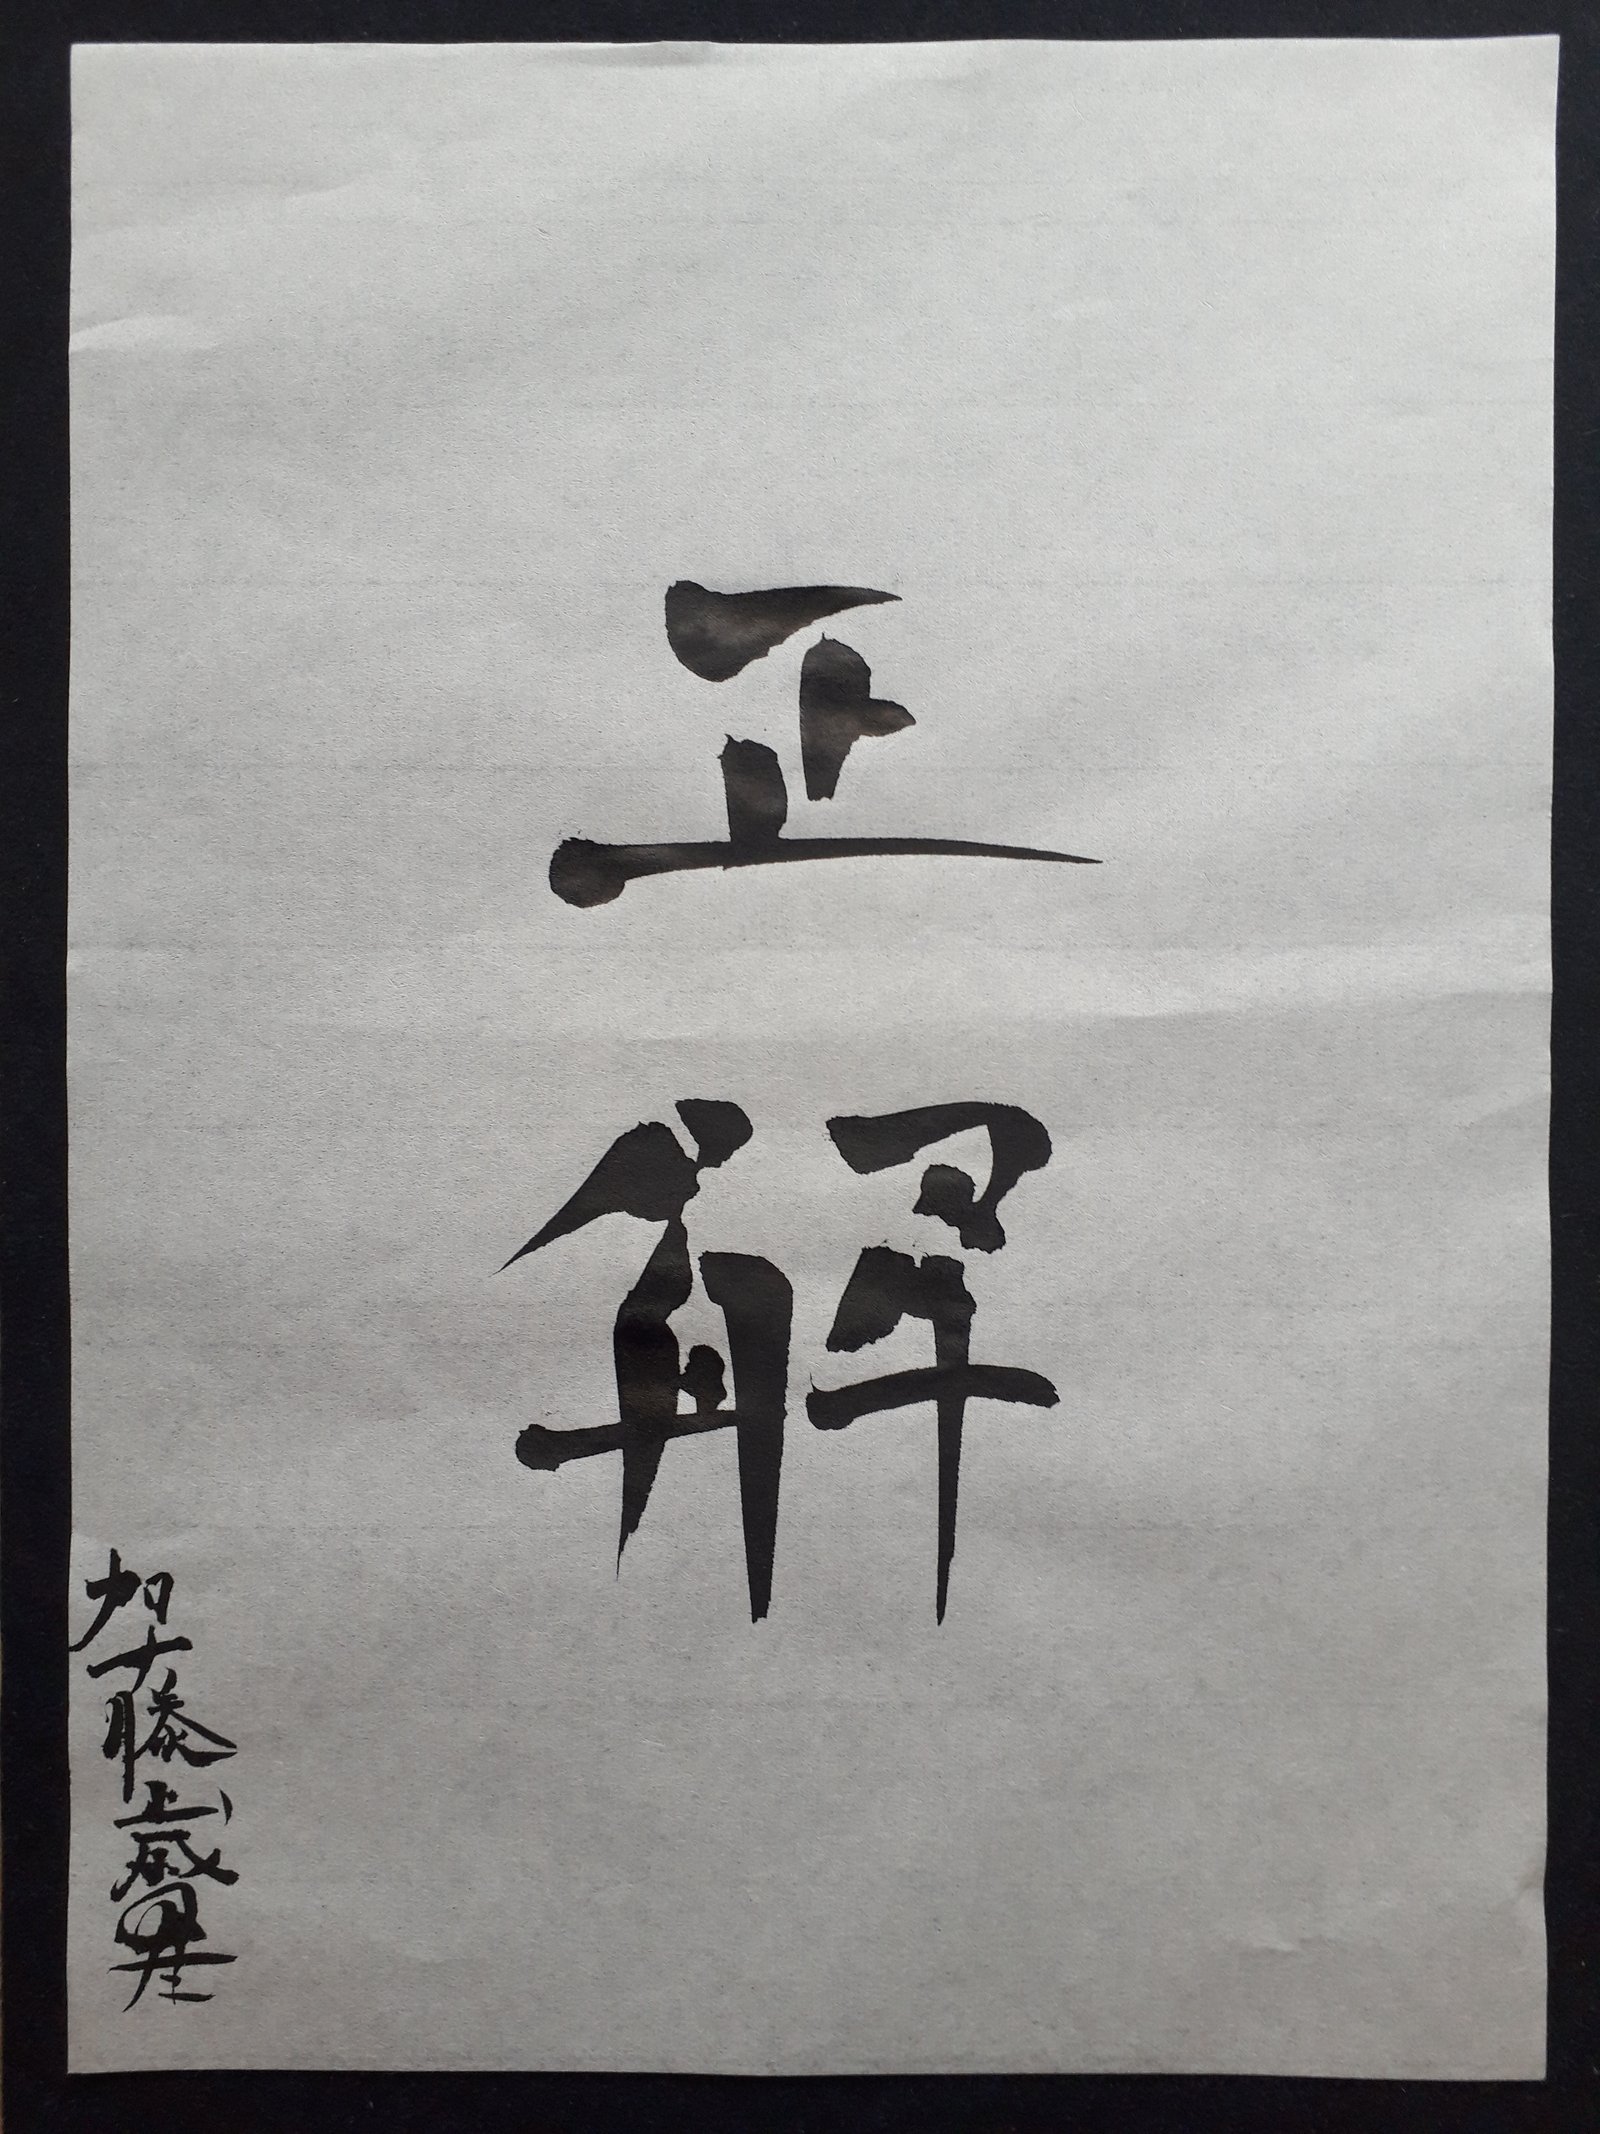 正解
加藤歳星